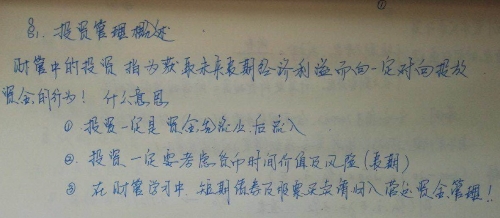 ①
§1. 投资管理概述
财管中的投资 指为获取未来长期经济利益而向一定对向投放
资金的行为！ 什么意思
① 投资一定是资金先流出.后流入
②. 投资一定要考虑货币时间价值及风险(长期)
③ 在财管学习中.短期债券及股票买卖请归入营运资金管理！！